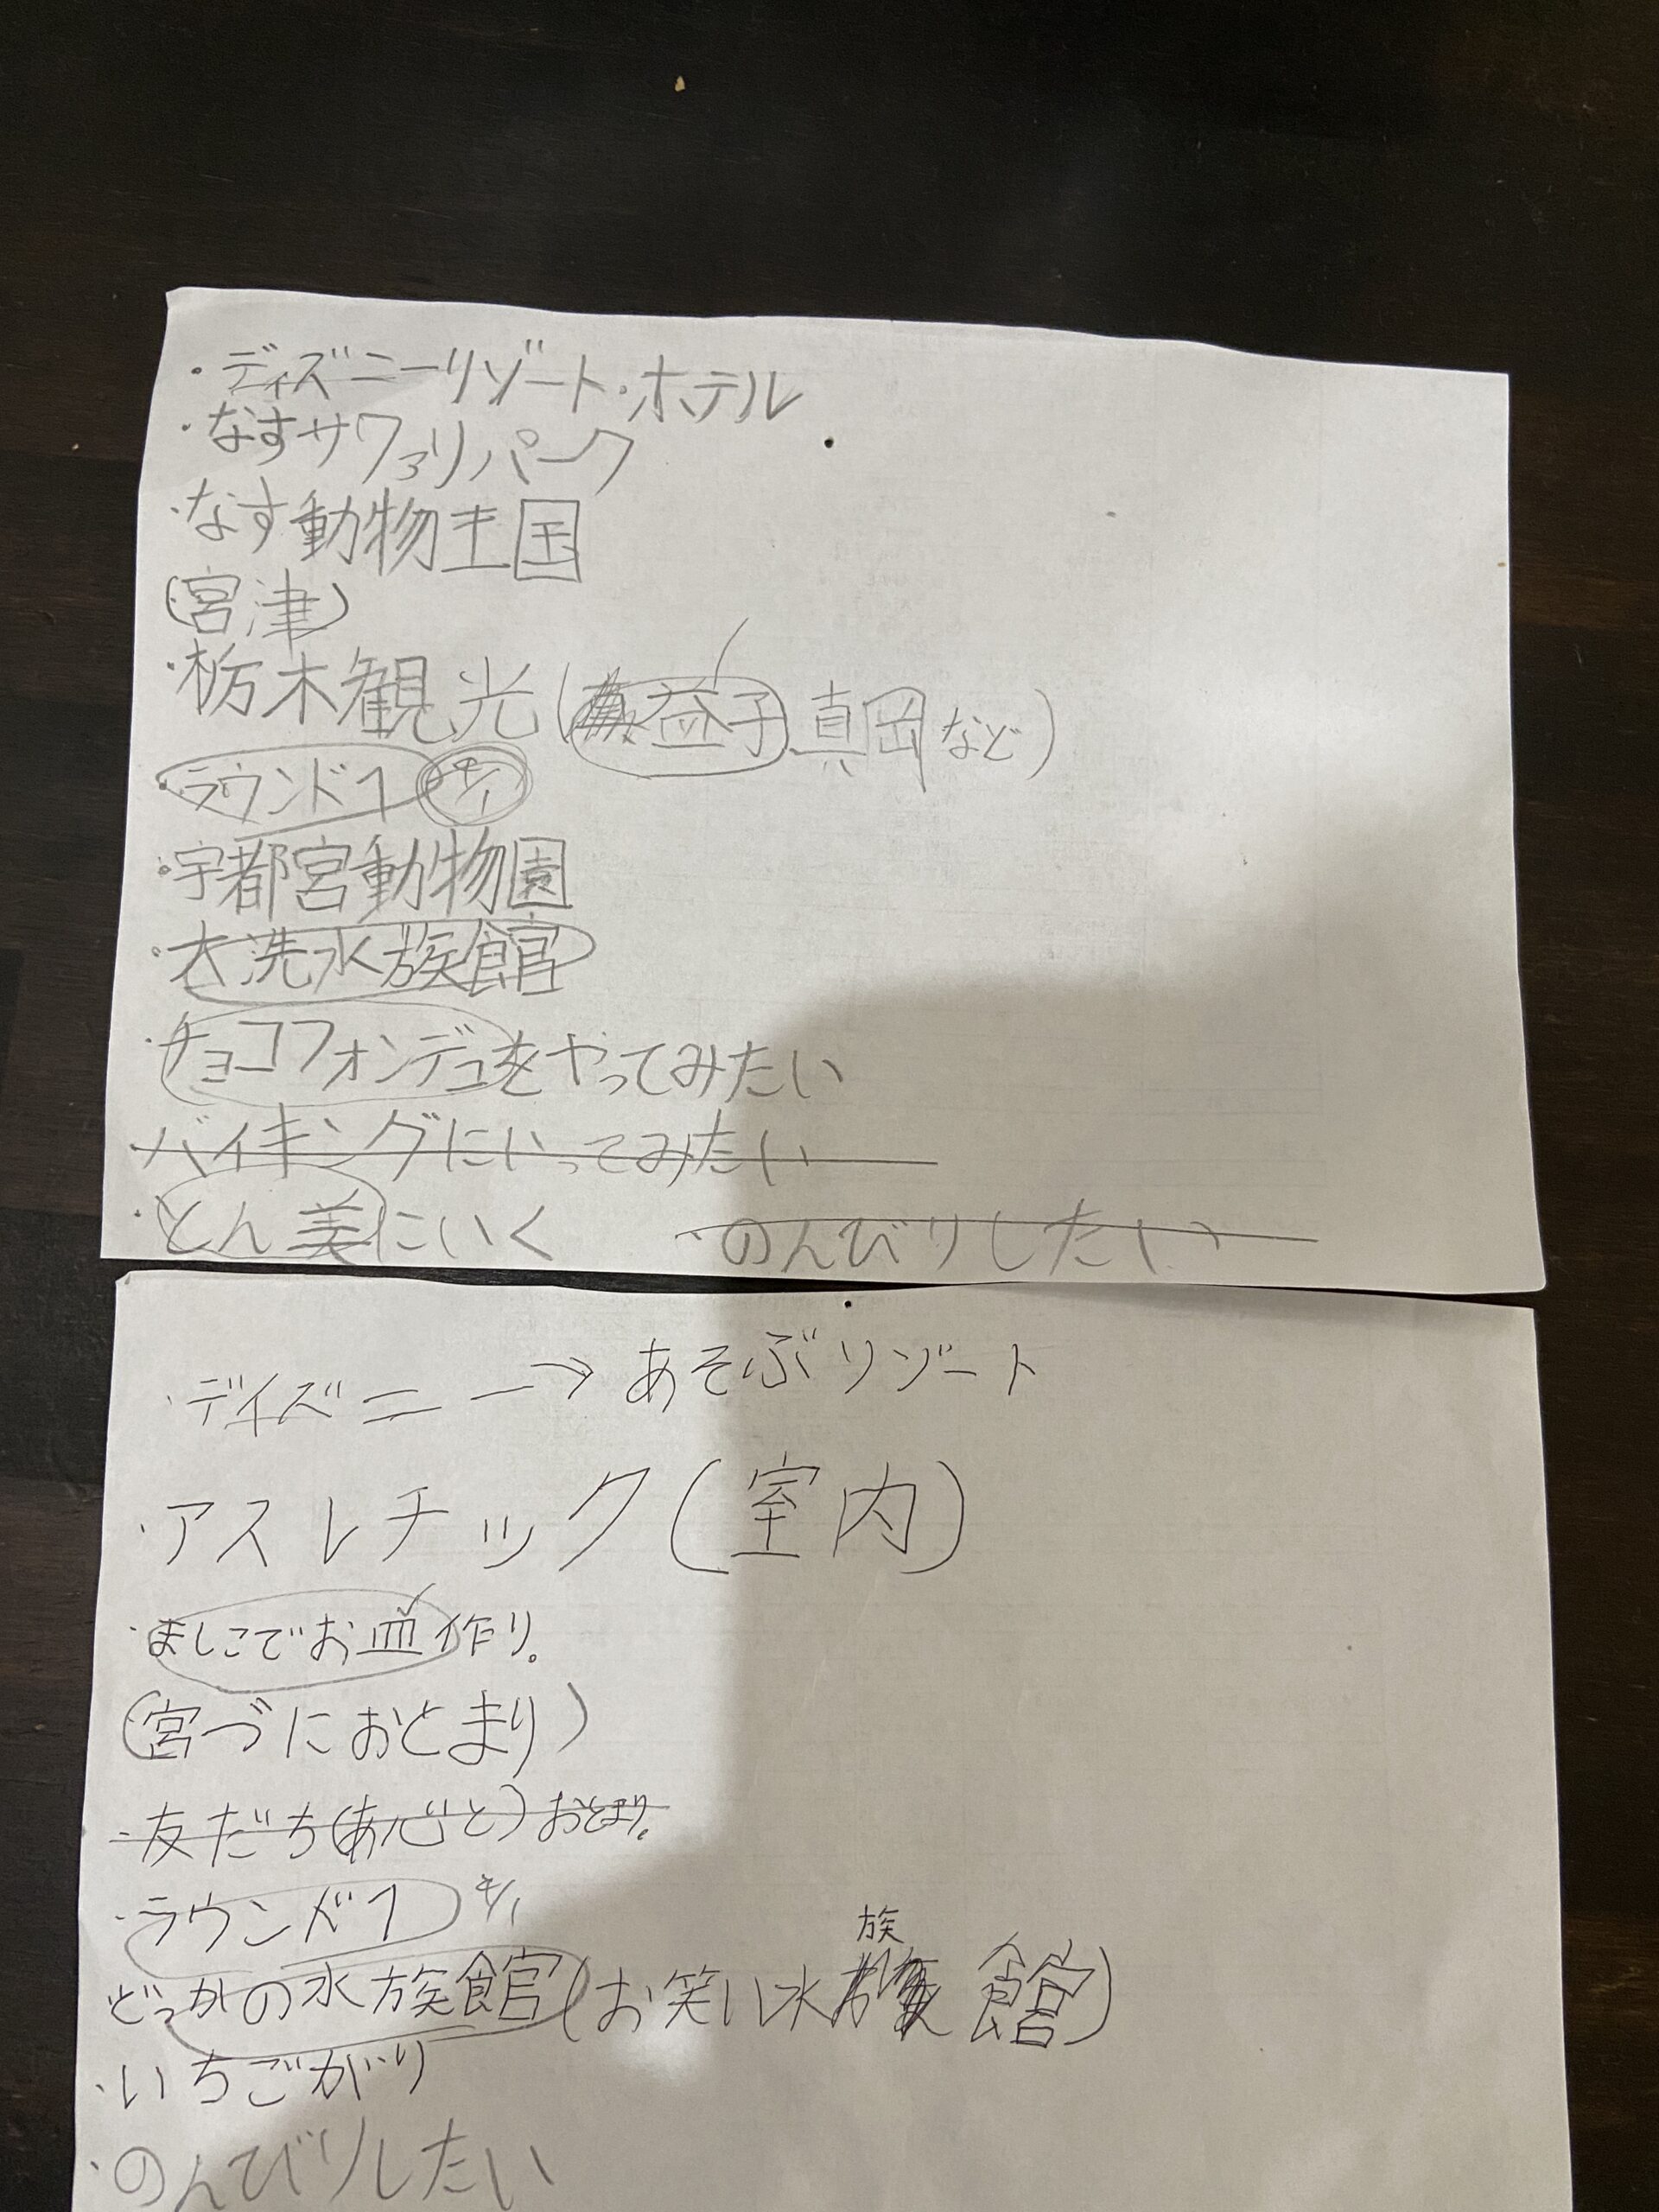 ・ディズニーリゾート・ホテル
・なすサファリパーク
・なす動物王国
(宮津)
・栃木観光(益子 真岡など)
・ラウンド1 4/1
・宇都宮動物園
・大洗水族館
・チョコフォンデュをやってみたい
バイキングにいってみたい
・とん美にいく ・のんびりしたい
・ディズニー→あそぶリゾート
・アスレチック(室内)
・ましこでお皿作り。
(宮づにおとまり)
・友だち( と)おとまり。
・ラウンド1 4/1
どっかの水族館(お笑い水族館)
・いちごがり
・のんびりしたい